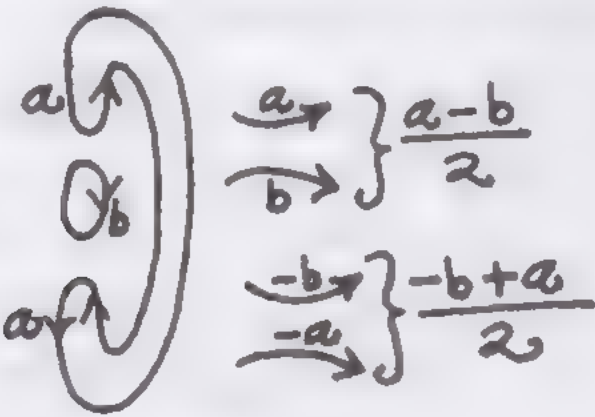 a
b
a
a
b
} a-b/2
-b
-a
} -b+a/2